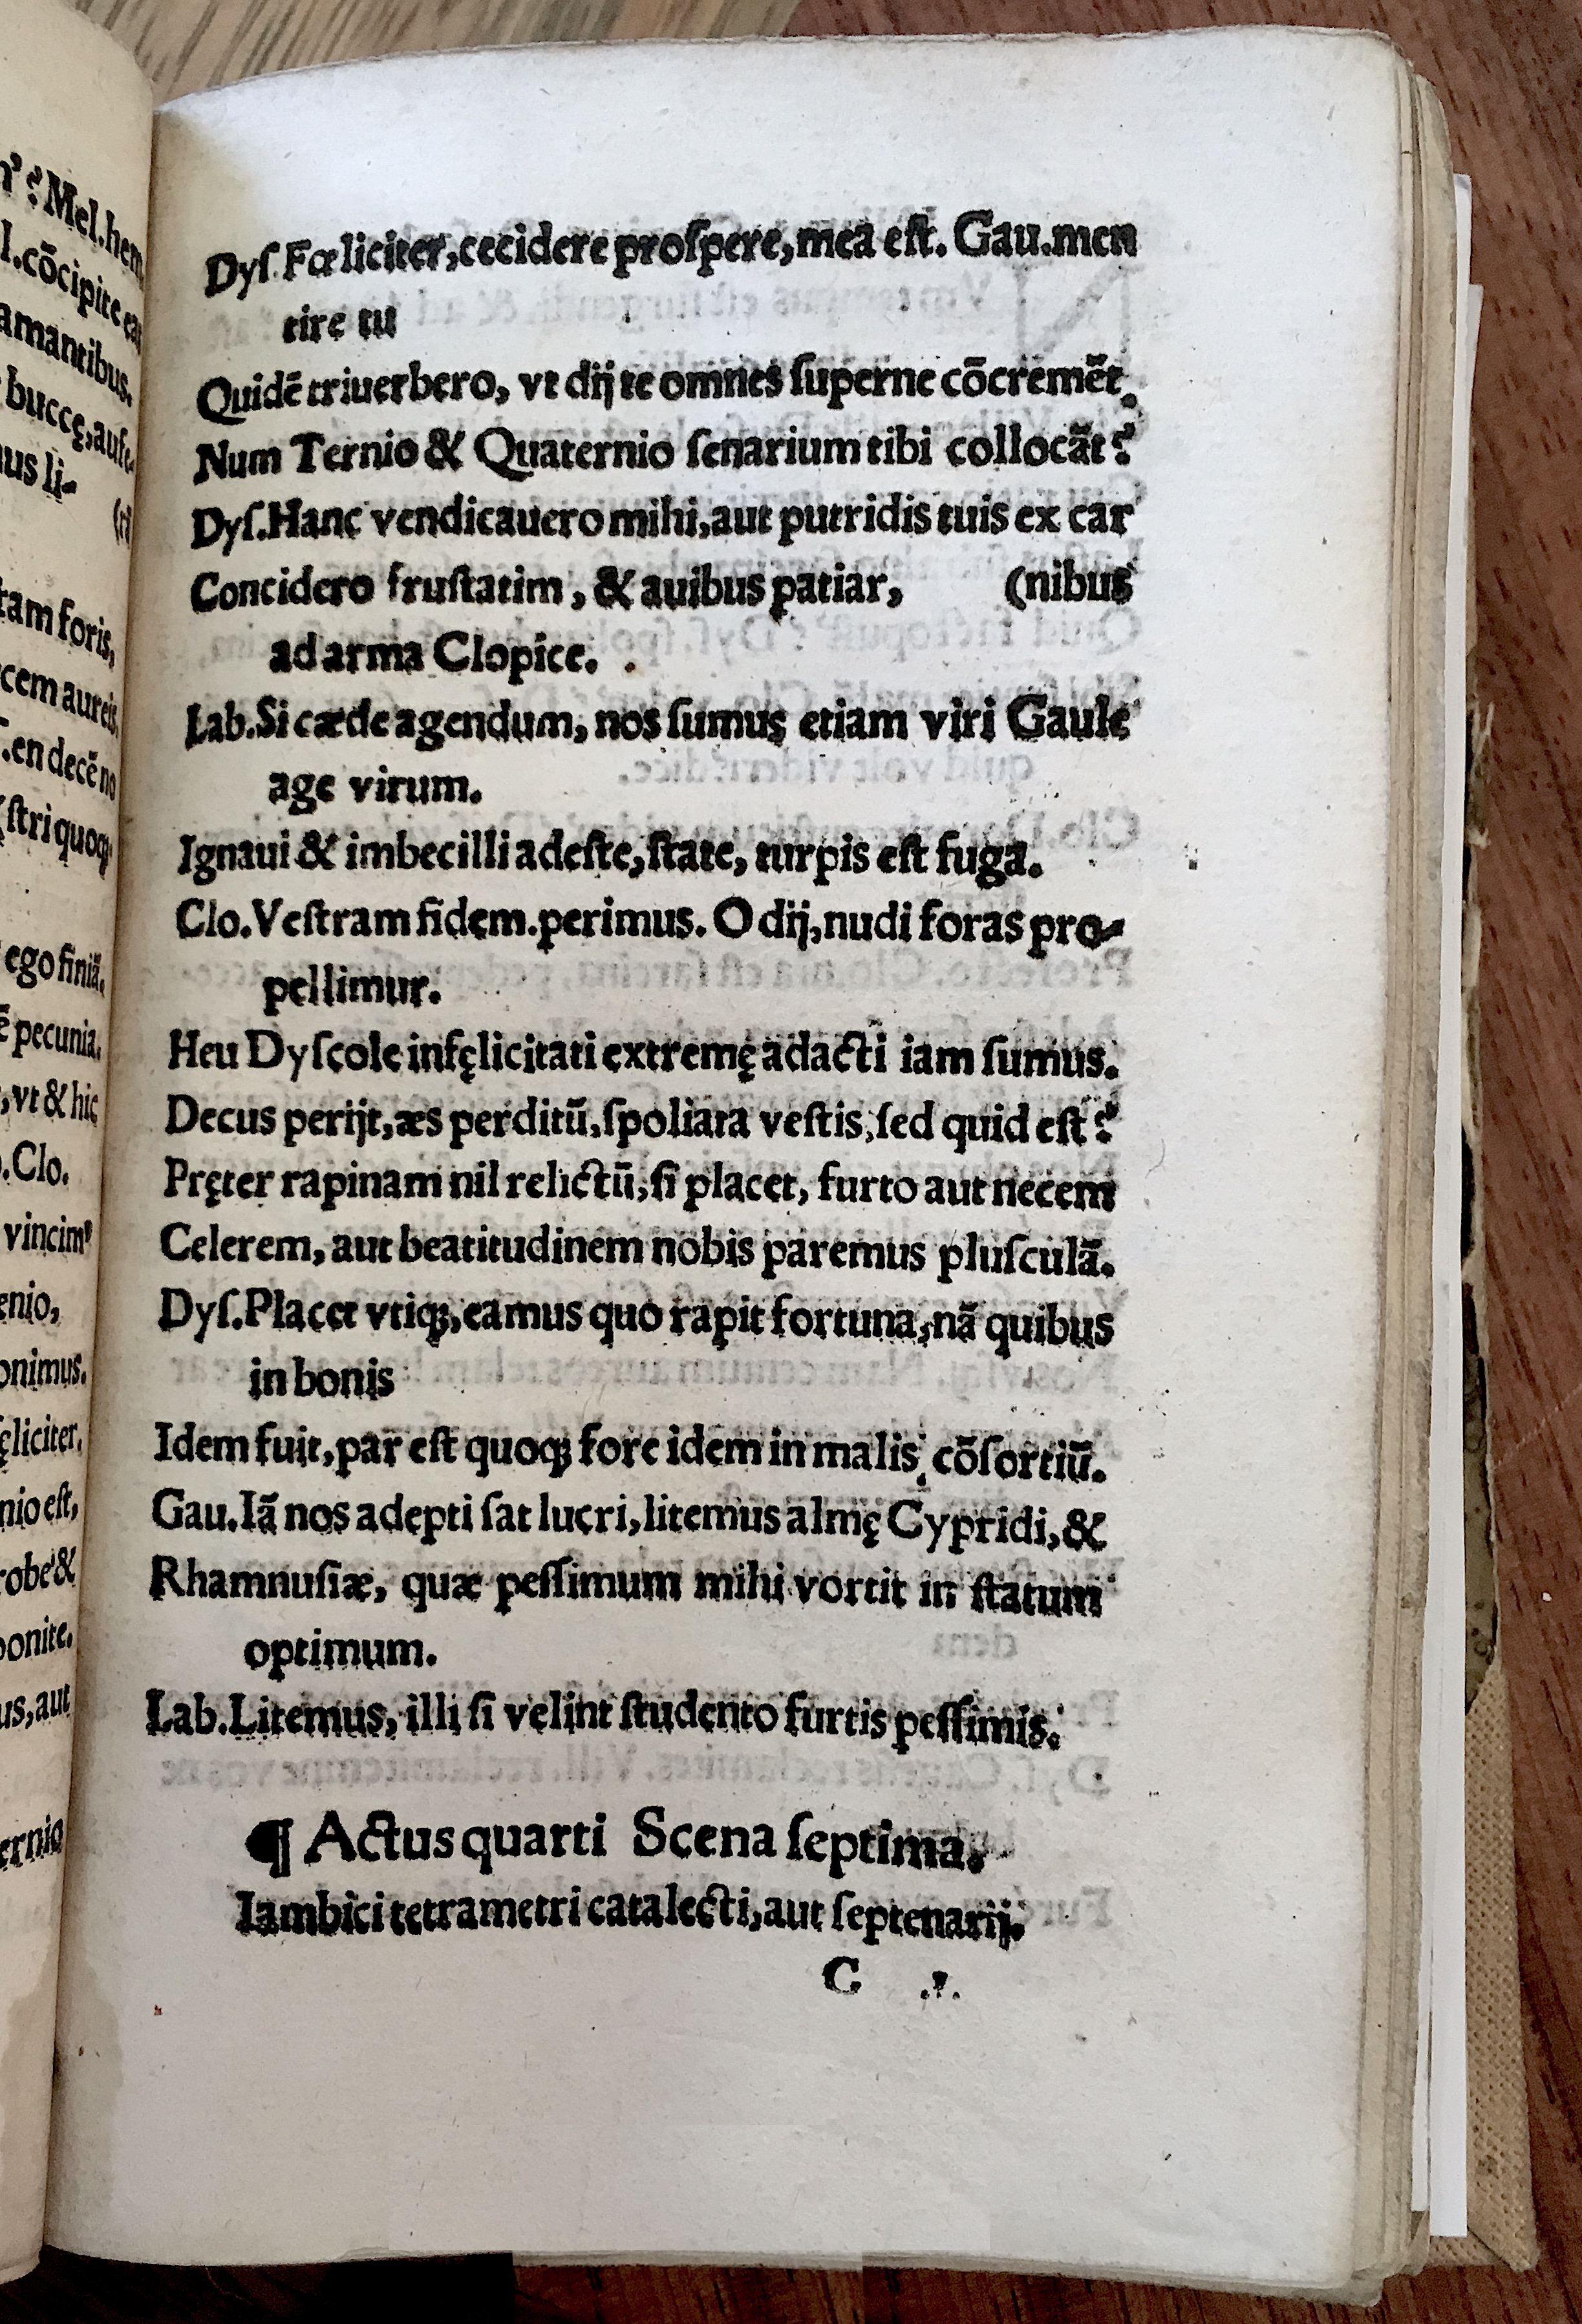 nꝰ? Mel.hem
l.cōcipite ea
amantibus.
buccę,aufe-
us li-
(ri
tam foris,
cem aureis,
.en decē no
(ſtri quoqꝫ
ego finiā.
ē pecunia.
,vt & hic
.Clo.
vincimꝰ
enio,
onimus.
ęliciter,
nio eſt,
robe &
ponite.
us, aut
ernio
Dyſ.Fœliciter,cecidere proſpere,mea eſt. Gau.men
tire tu
Quidē triuerbero, vt dij te omnes ſuperne cōcremēt.
Num Ternio & Quaternio ſenarium tibi collocāt?
Dyſ.Hanc vendicauero mihi,aut putridis tuis ex car
Concidero fruſtatim, & auibus patiar, (nibus
ad arma Clopice.
Lab.Si cæde agendum, nos ſumus etiam viri Gaule
age virum.
Ignaui & imbecilli adeſte,ſtate, turpis eſt fuga.
Clo.Veſtram fidem.perimus. O dij,nudi foras pro-
pellimur.
Heu Dyſcole infęlicitati extremę adacti iam ſumus.
Decus perijt,æs perditū,ſpoliata veſtis,ſed quid eſt?
Pręter rapinam nil relictū,ſi placet, furto aut necem
Celerem, aut beatitudinem nobis paremus pluſculā.
Dyſ.Placet vtiqꝫ,eamus quo rapit fortuna,nā quibus
in bonis
Idem fuit,par eſt quoqꝫ fore idem in malis cōſortiū.
Gau.Iā nos adepti ſat lucri,litemus almę Cypridi,&
Rhamnuſiæ, quæ peſſimum mihi vortit in ſtatum
optimum.
Lab.Litemus, illi ſi velint ſtudento furtis peſſimis.
¶ Actus quarti Scena ſeptima.
Iambici tetrametri catalecti,aut ſeptenarij.
C